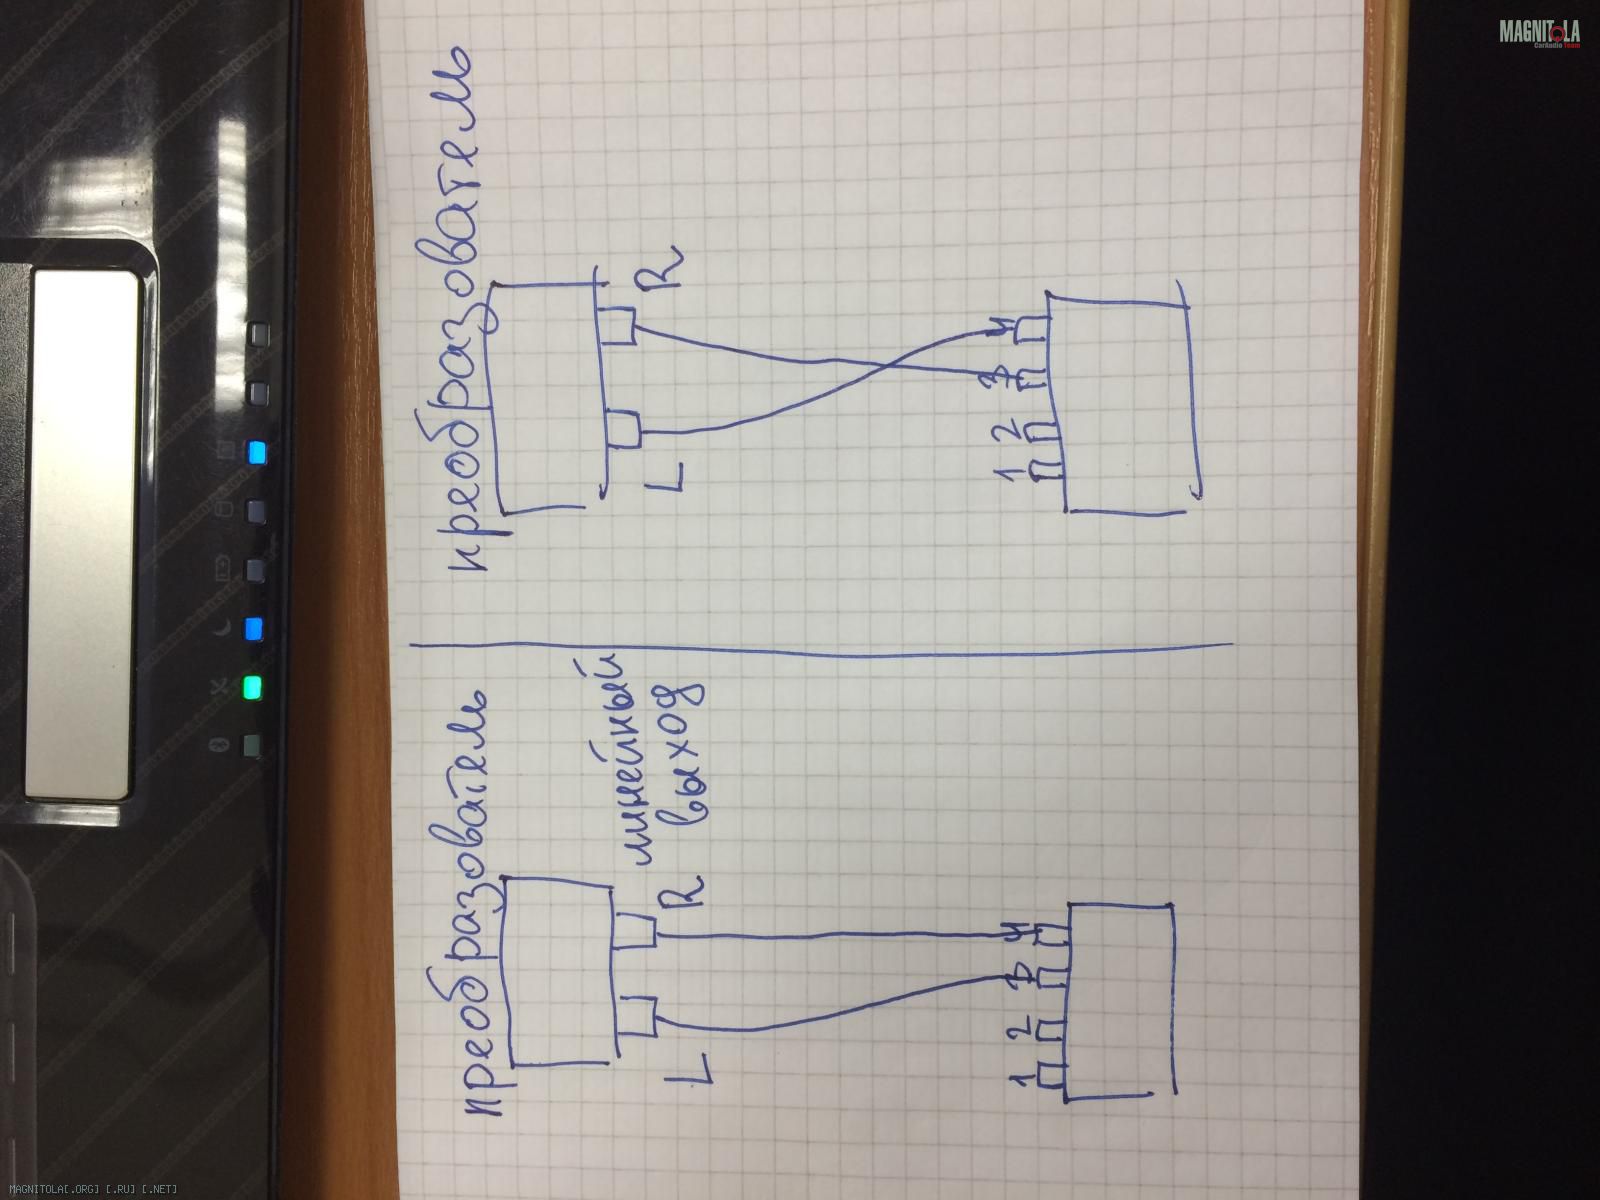 преобразователь
линейный
выход
L R
1 2 3 4
преобразователь
L R
1 2 3 4
MAGNITOLA
CarAudio Team
MAGNITOLA[.ORG] [.RU] [.NET]